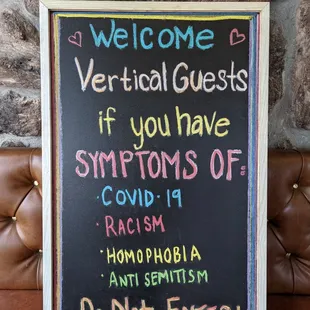 Welcome
Vertical Guests
if you have
SYMPTOMS OF:
· COVID-19
· RACISM
· HOMOPHOBIA
· ANTISEMITISM
Do Not Enter!